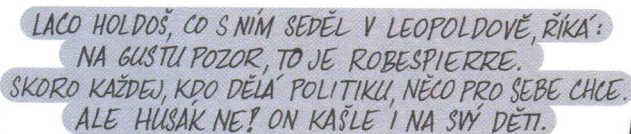 LACO HOLDOŠ, CO S NÍM SEDĚL V LEOPOLDOVĚ, ŘÍKÁ:
NA GUSTU POZOR, TO JE ROBESPIERRE.
SKORO KAŽDEJ, KDO DĚLÁ POLITIKU, NĚCO PRO SEBE CHCE.
ALE HUSÁK NE! ON KAŠLE I NA SVÝ DĚTI.